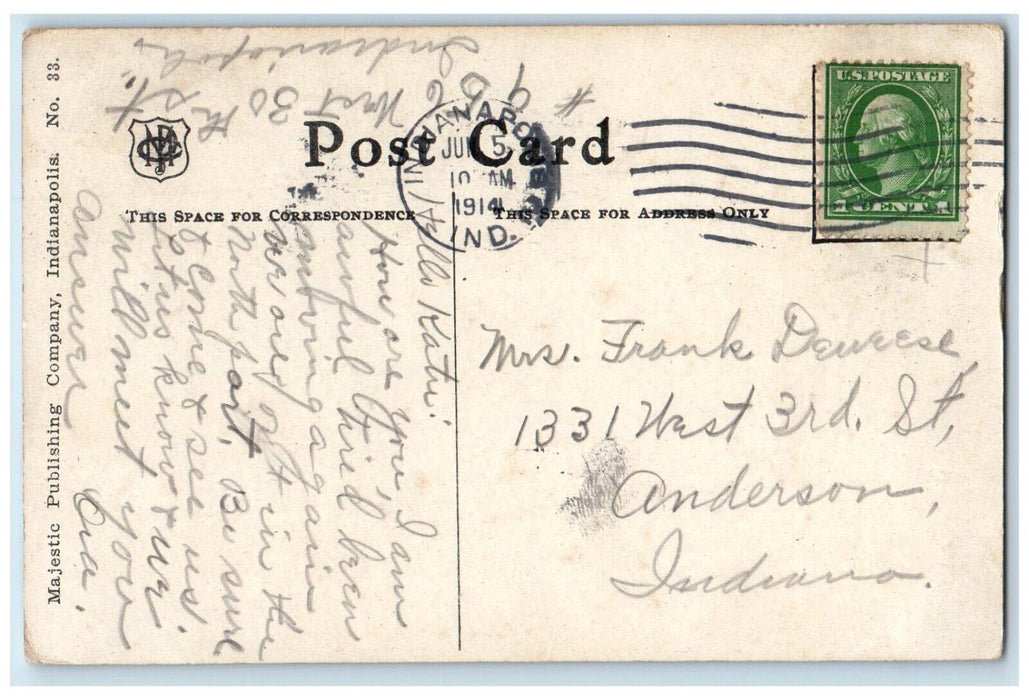 Majestic Publishing Company, Indianapolis. No. 33.
Post Card
THIS SPACE FOR CORRESPONDENCE
THIS SPACE FOR ADDRESS ONLY
INDIANAPOLIS
JUN 5
10 AM
1914
IND.
U.S. POSTAGE
1 CENT 1
Mrs. Frank Deweese,
1331 West 3rd. St,
Anderson,
Indiana.
Hello Katie.
How are you, I am
awful tired been
moving again
we are out in the
north part, Be sure
& come & see us.
let us know & we
will meet you
answer Ona.
West 30
th st.
Indianapolis